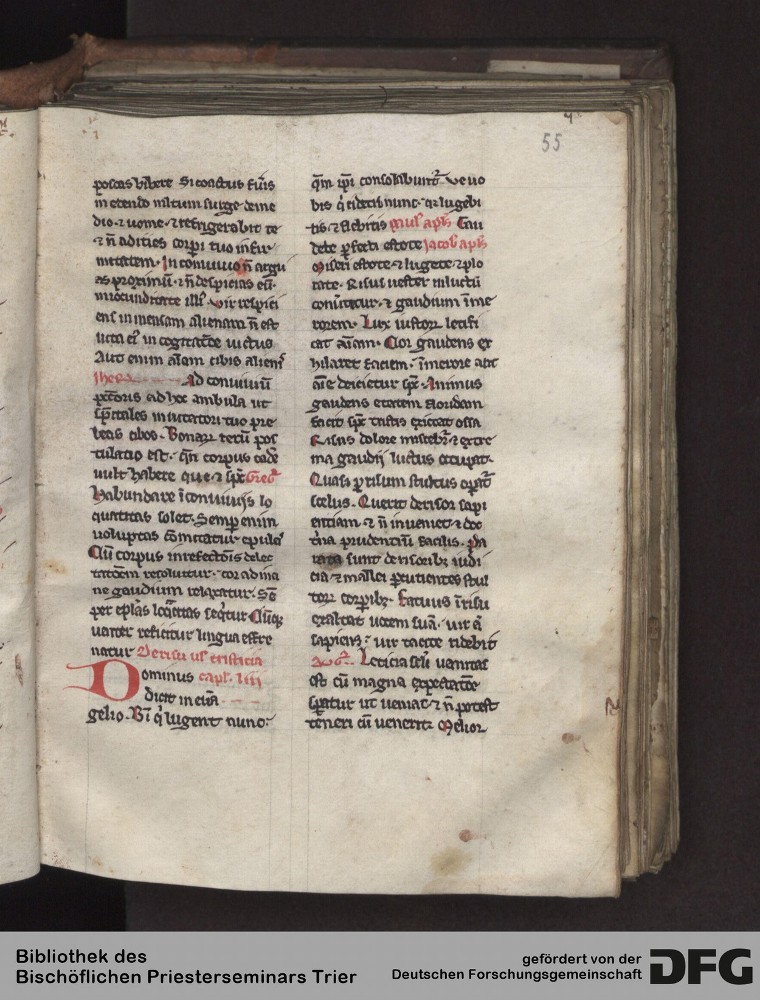 55
poscas bibere Si coactus fu͛is
in edendo multum surge de me
dio ⁊ uome ⁊ refrigerabit te
⁊ ñ adities corpi tuo infir
mitatem. In conuiuio ñ argu
as proximũ ⁊ ñ despicias eũ.
in iocunditate illi᷒ Vir respici
ens in mensam alienam ñ est
uita ei᷒ in cogitatõe uictus
Alit enim aĩam cibis alieni᷒
Ad conuiuiũ
peccõris ad hoc ambula ut
sp̃itales inuitatori tuo pre
beas cibos. Bonarũ rerũ pos
tulatio est. qñ corpus cade
uult habere que ⁊ sp̃c Greg᷒
Habundare ĩ conuiuijs lo
quacitas solet. Semp̱ enim
uoluptas comitatur epulas
Cũ corpus in refectõis delec
tatõem resoluitur. cor ad ina
ne gaudium relaxatur. Se
per epl̃as loq̃citas seq̃tur Cũq;
uenter reficitur lingua effre
natur De risu ul᷒ tristicia
Dominus capl᷒. liii
dicit in euã
gelio. Bĩ q̇ lugent nunc
qm̃ ip̃i consolabunt᷑. Ve uo
bis q̇ ridetis nunc. q̃ lugebi
tis ⁊ flebitis Paul᷒ apl᷒s Gau
dete ꝑfecti estote Jacob᷒ apl᷒s
Miseri estote ⁊ lugete ⁊ plo
rate. Risus uester in luctũ
conũtatur. ⁊ gaudium ĩ me
rorem. Lux iustoꝝ letifi
cat aĩam. Cor gaudens ex
hilarat faciem. ĩ merore aũt
aĩe deicietur sp̃c. Animus
gaudens etatem floridam
facit sp̃c tristis exiccat ossa
Risus dolore miscebit᷑ ⁊ extre
ma gaudij luctus occupat.
Quasi ꝑ risum stultus op̃at᷑
scelus. Querit derisor sapi
entiam ⁊ ñ inueniet ⁊ doc
trĩa prudentiũ facilis. Pa
rata sunt derisorib; iudi
cia ⁊ mallei ꝑcutientes stul
toꝝ corꝑib;. Fatuus ĩ risu
exaltat uocem suã. uir aũ
sapiens uir tacite ridebit
Aug᷒. Leticia seculi uanitas
est cũ magna expectatõe
sꝑatur ut ueniat ⁊ ñ potest
teneri cũ uenerit. Melior
Bibliothek des
Bischöflichen Priesterseminars Trier
gefördert von der
Deutschen Forschungsgemeinschaft
DFG